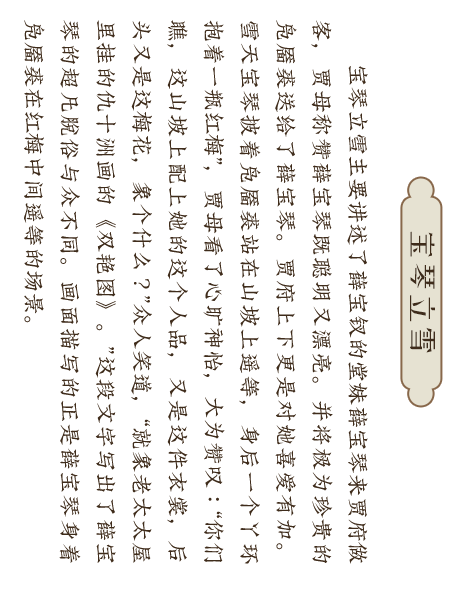 宝琴立雪
宝琴立雪主要讲述了薛宝钗的堂妹薛宝琴来贾府做
客，贾母称赞薛宝琴既聪明又漂亮。并将极为珍贵的
凫靥裘送给了薛宝琴。贾府上下更是对她喜爱有加。
雪天宝琴披着凫靥裘站在山坡上遥等，身后一个丫环
抱着一瓶红梅”，贾母看了心旷神怡，大为赞叹：“你们
瞧，这山坡上配上她的这个人品，又是这件衣裳，后
头又是这梅花，象个什么？”众人笑道，“就象老太太屋
里挂的仇十洲画的《双艳图》。”这段文字写出了薛宝
琴的超凡脱俗与众不同。画面描写的正是薛宝琴身着
凫靥裘在红梅中间遥等的场景。